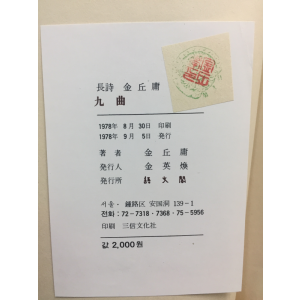 長詩 金丘庸
九曲
1978年 8月 30日 印刷
1978年 9月 5日 発行
著者 金丘庸
発行人 金英煥
発行所
서울・鍾路区 安国洞 139-1
전화：72-7318・7368・75-5956
印刷 三信文化社
값 2,000원